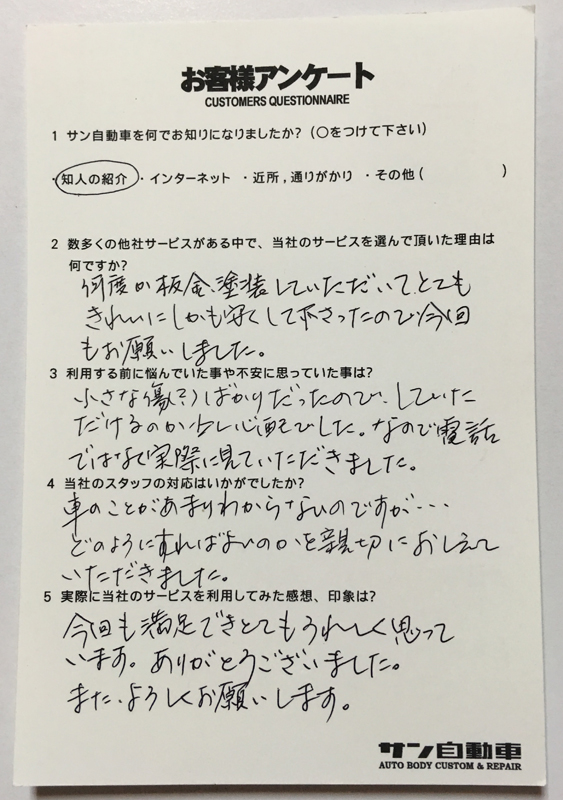 お客様アンケート
CUSTOMERS QUESTIONNAIRE
1 サン自動車を何でお知りになりましたか?(○をつけて下さい)
・知人の紹介 ・インターネット ・近所,通りがかり ・その他( )
2 数多くの他社サービスがある中で、当社のサービスを選んで頂いた理由は
何ですか?
何度か板金、塗装していただいて、とても
きれいにしかも安くして下さったので今回
もお願いしました。
3 利用する前に悩んでいた事や不安に思っていた事は?
小さな傷(?)ばかりだったので、していた
だけるのか少し心配でした。なので電話
ではなく実際に見ていただきました。
4 当社のスタッフの対応はいかがでしたか?
車のことがあまりわからないのですが・・・
どのようにすればよいのかを親切におしえて
いただきました。
5 実際に当社のサービスを利用してみた感想、印象は?
今回も満足できとてもうれしく思って
います。ありがとうございました。
また、よろしくお願いします。
サン自動車
AUTO BODY CUSTOM & REPAIR